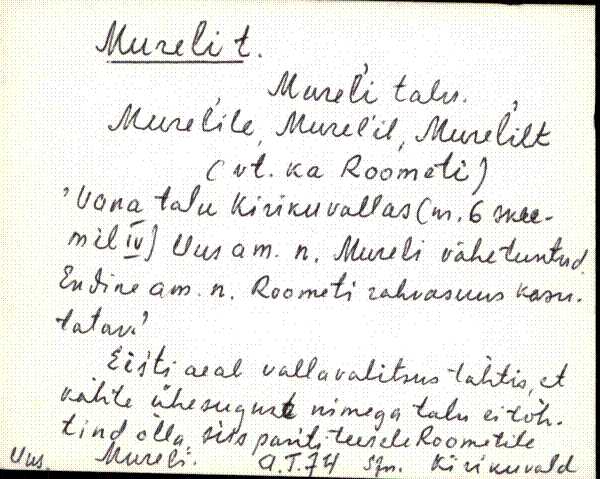 Mureli t.
Mureĺi talu.
Mureĺile, Mureĺil, Mureĺilt
(vt. ka Roometi)
'Vana talu Kirikuvallas (nr. 6 skee-
mil IV) Uus am. n. Mureli vähetuntud.
Endine am. n. Roometi rahvasuus kasu-
tatav.'
Eisti aeal vallavalitsus tahtis, et
valite ühesuguste nimega talu ei töh-
tind olla, siis panti teisele Roometile
Uus. Mureli. A.T.74 Stn. Kirikuvald